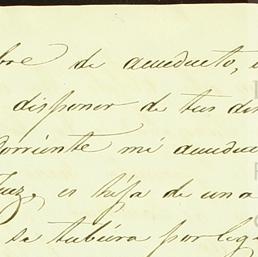 bre de acueducto,
disponer de tus
corriente mi acueduc
Juez, es hija de una
se tubiera por leg